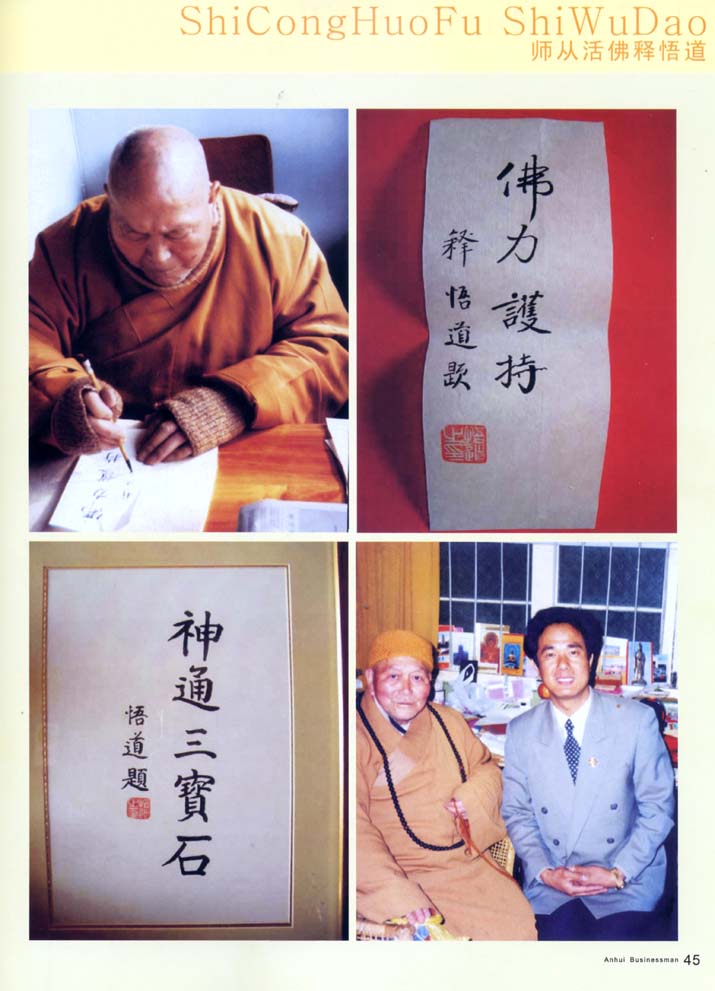 ShiCongHuoFu ShiWuDao
师从活佛释悟道
佛力護持
釋悟道題
神通三寶石
悟道題
Anhui Businessman 45